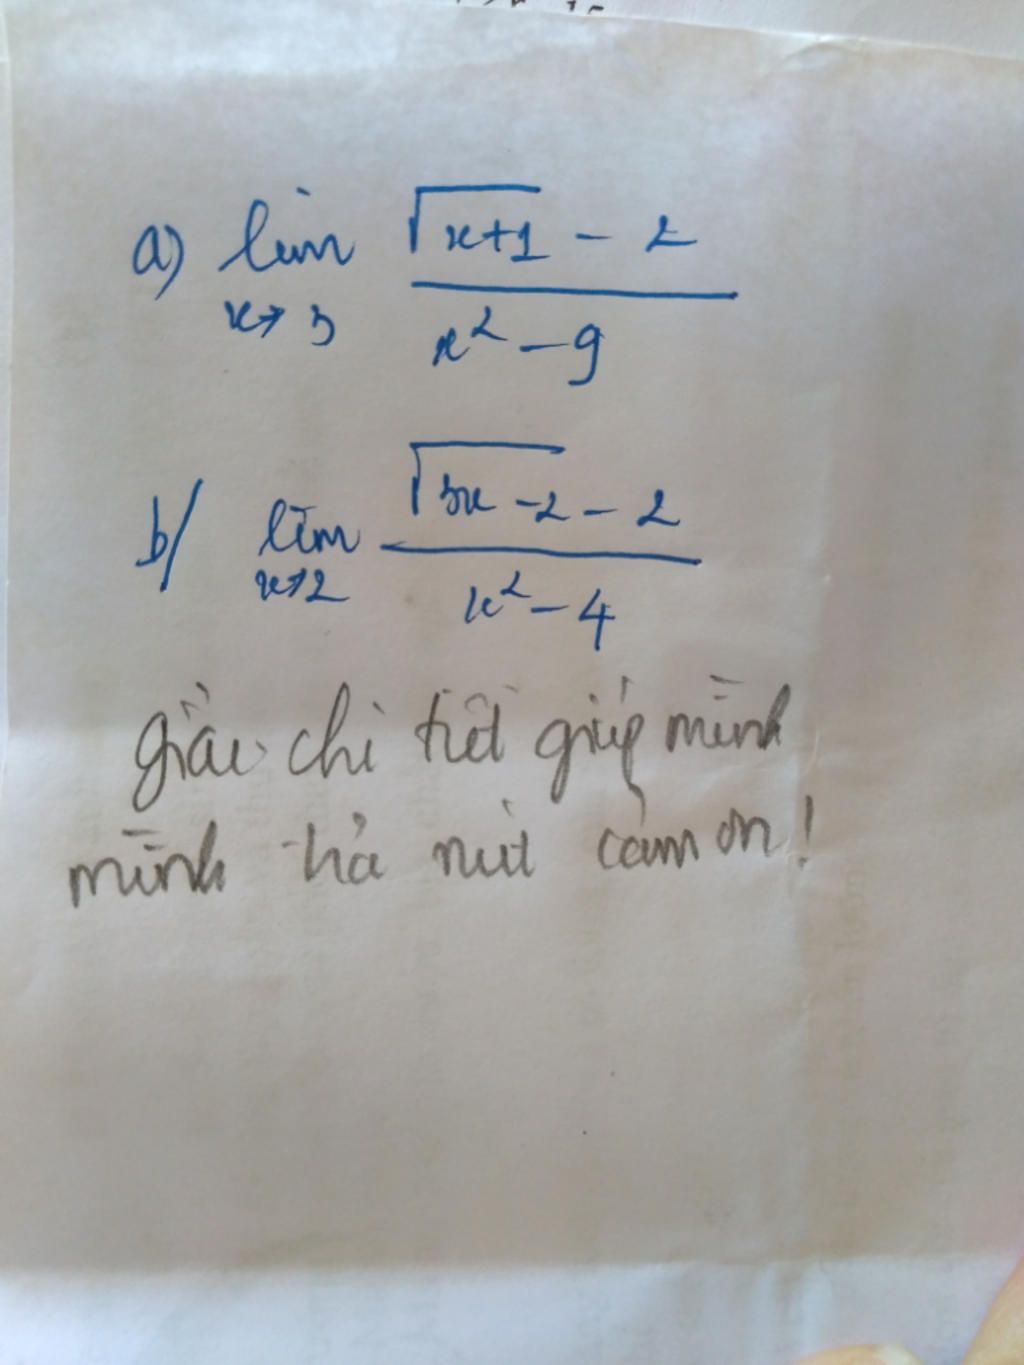 a) lim √x+1 - 2
x→3 x² - 9
b/ lim √3x - 2 - 2
x→2 x² - 4
giải chi tiết giúp mình
mình thả nút cảm ơn!